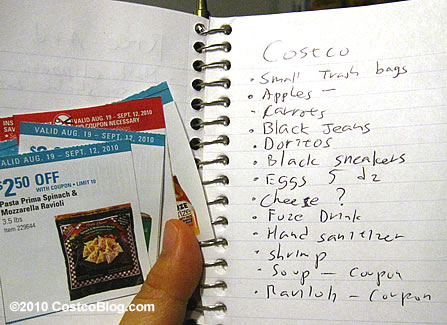 INS
SAV
VALID AUG. 19 - SEPT. 12, 2010
NO COUPON NECESSARY
VALID AUG. 19 - SEPT. 12, 2010
VALID AUG. 19 - SEPT. 12, 2010
$2.50 OFF
WITH COUPON • LIMIT 10
Pasta Prima Spinach &
Mozzarella Ravioli
3.5 lbs
Item 229644
FUZE
Costco
• Small Trash bags
• Apples -
• Karrots
• Black Jeans
• Doritos
• Black sneakers
• Eggs 5 dz
• Cheese ?
• Fuze Drink
• Hand sanitizer
• shrimp
• Soup - Coupon
• Ravioli - Coupon
©2010 CostcoBlog.com